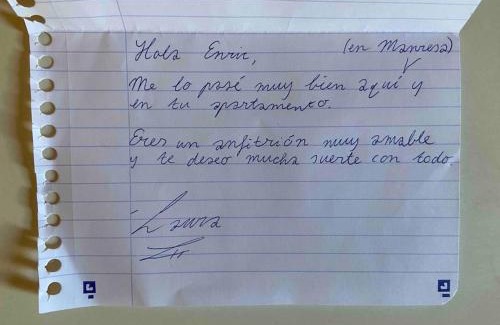 Hola Enric,
(en Manresa)
Me lo pasé muy bien aquí y
en tu apartamento.
Eres un anfitrión muy amable
y te deseo mucha suerte con todo
Laura